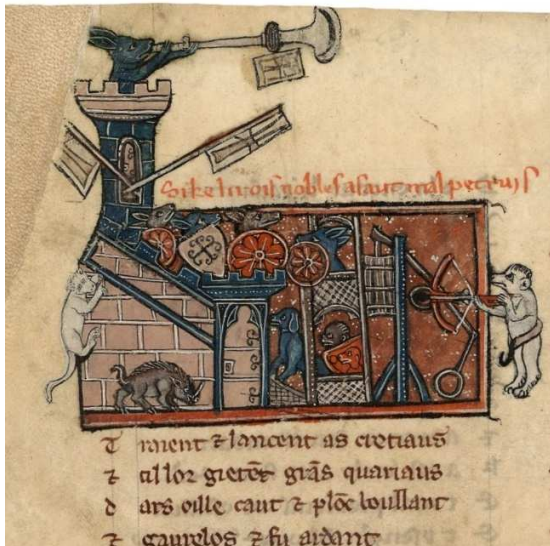 Si ke li rois nobles asaut malpetruis
T raient ⁊ lancent as cretiaus
⁊ cil lor gietēt grãs quariaus
d ars oille caut ⁊ plõc boullant
⁊ gaurelos ⁊ fu ardant